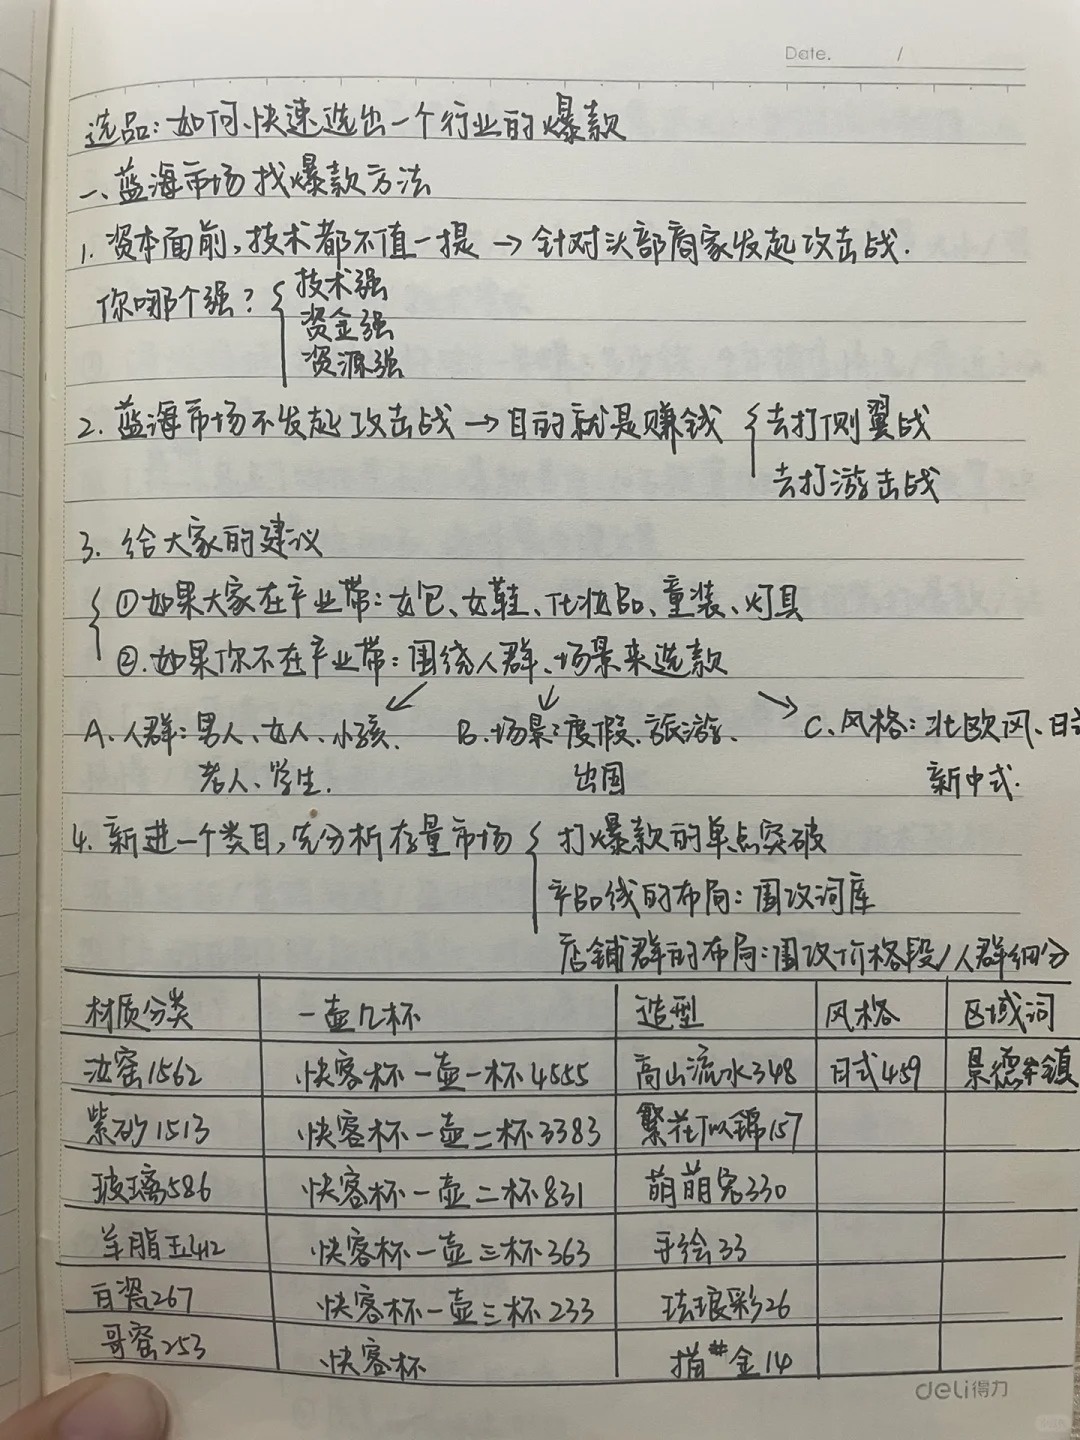 Date. /
选品：如何快速选出一个行业的爆款
一、蓝海市场找爆款方法
1. 资本面前，技术都不值一提 → 针对头部商家发起攻击战.
你哪个强？ { 技术强
资金强
资源强
2. 蓝海市场不发起攻击战 → 目的就是赚钱 { 去打侧翼战
去打游击战
3. 给大家的建议
{ ①如果大家在产业带：女包、女鞋、化妆品、童装、灯具
②.如果你不在产业带：围绕人群、场景来选款
A. 人群：男人、女人、小孩. B. 场景：度假、旅游. C. 风格：北欧风、日式
老人、学生. 出国 新中式.
4. 新进一个类目，先分析存量市场 { 打爆款的单点突破
产品线的布局：围攻词库
店铺群的布局：围攻价格段/人群细分
材质分类 一壶几杯 造型 风格 区域词
汝窑1562 快客杯一壶一杯4555 高山流水348 日式459 景德镇
紫砂1513 快客杯一壶二杯3383 繁花似锦157
玻璃586 快客杯一壶二杯831 萌萌宠330
羊脂玉412 快客杯一壶三杯363 手绘33
白瓷267 快客杯一壶三杯233 珐琅彩26
哥窑253 快客杯 描金14
deli得力